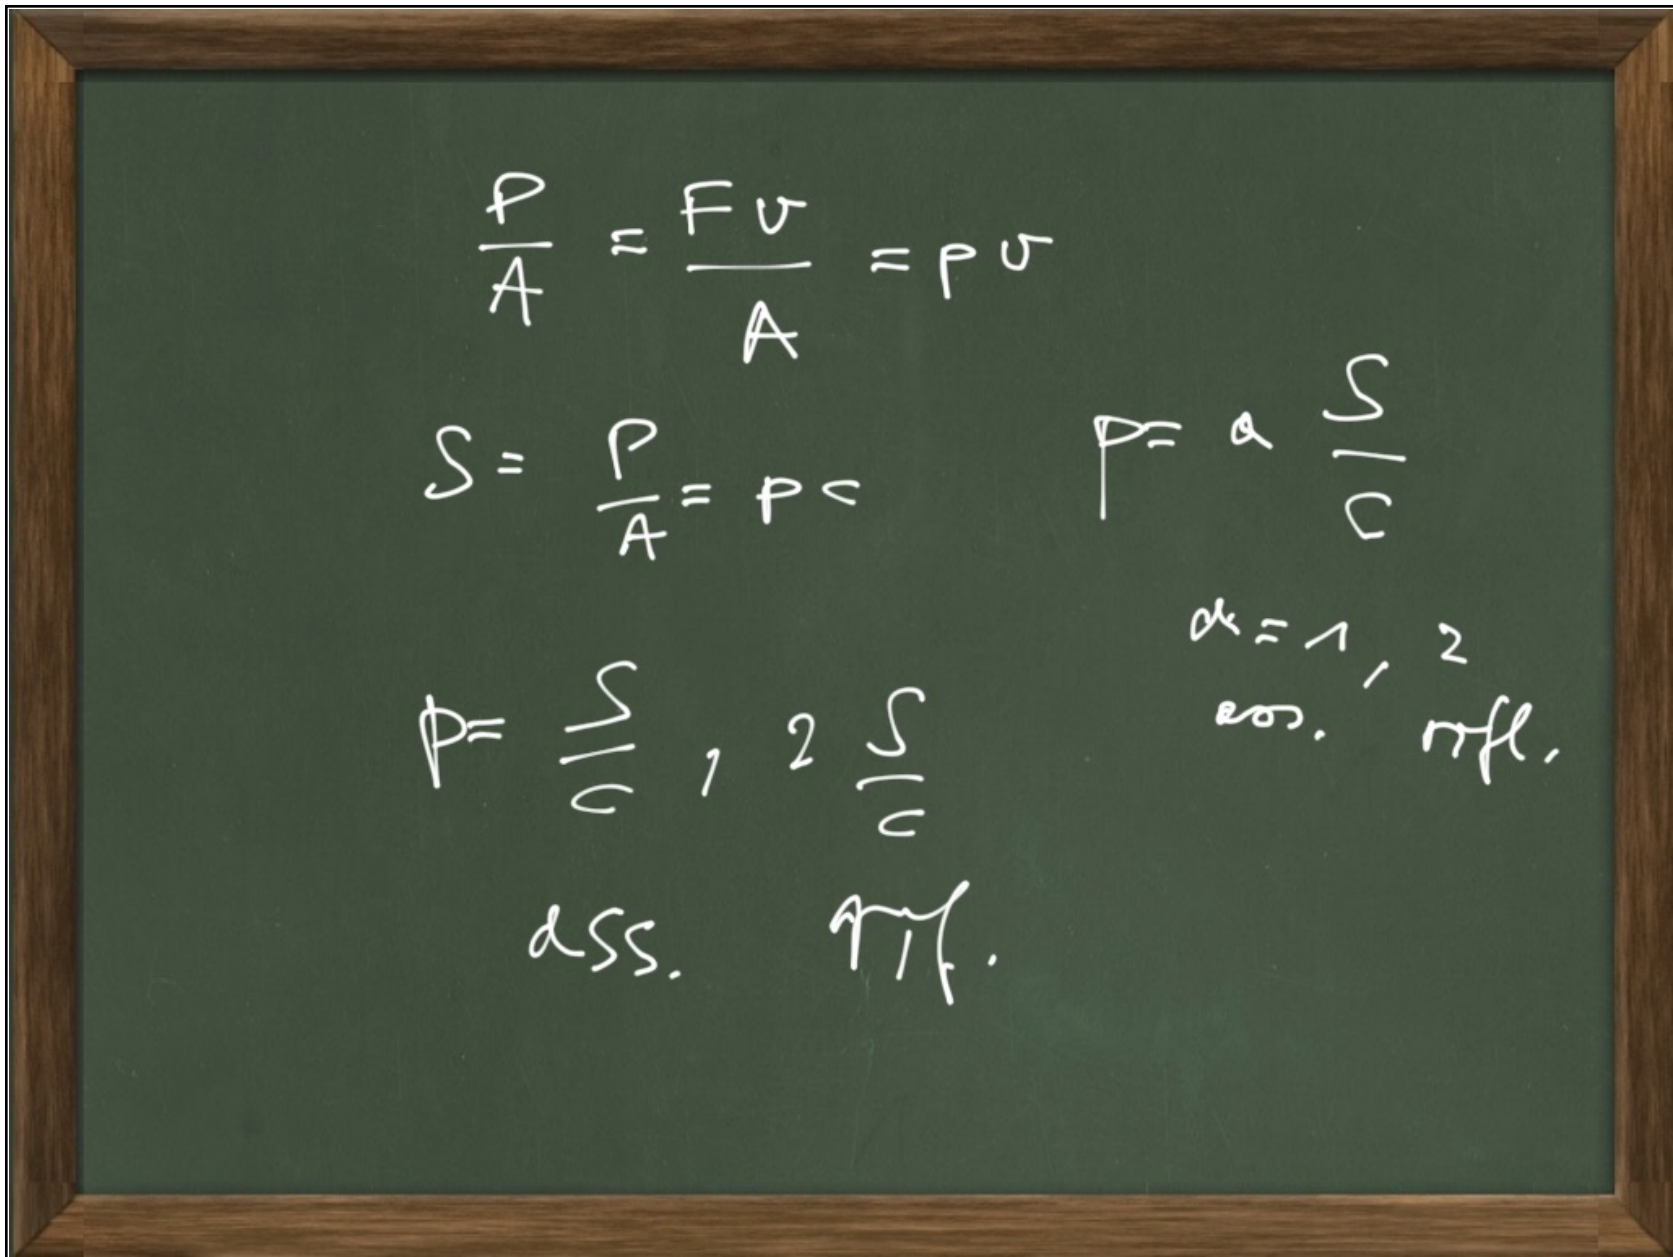 P/A = Fv/A = p v
S = P/A = p c
p = a S/c
α = 1, 2
ass. rifl.
p = S/c, 2 S/c
ass. rif.